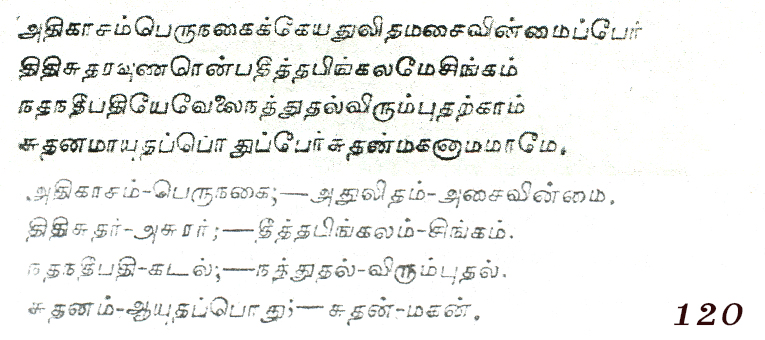 அதிகாசம்பெருநகைக்கேயதுலிதமசைவின்மைப்பேர்
திதிசுதரவுணரென்பதீத்தபிங்கலமேசிங்கம்
நதநதீபதியேவேலைநத்துதல்விரும்புதற்காம்
சுதனமாயுதப்பொதுப்பேர்சுதன்மகனாமமாமே.
அதிகாசம்-பெருநகை;—அதுலிதம்-அசைவின்மை.
திதிசுதர்-அசுரர்;—தீத்தபிங்கலம்-சிங்கம்.
நதநதீபதி-கடல்;—நத்துதல்-விரும்புதல்.
சுதனம்-ஆயுதப்பொது;—சுதன்-மகன்.
120